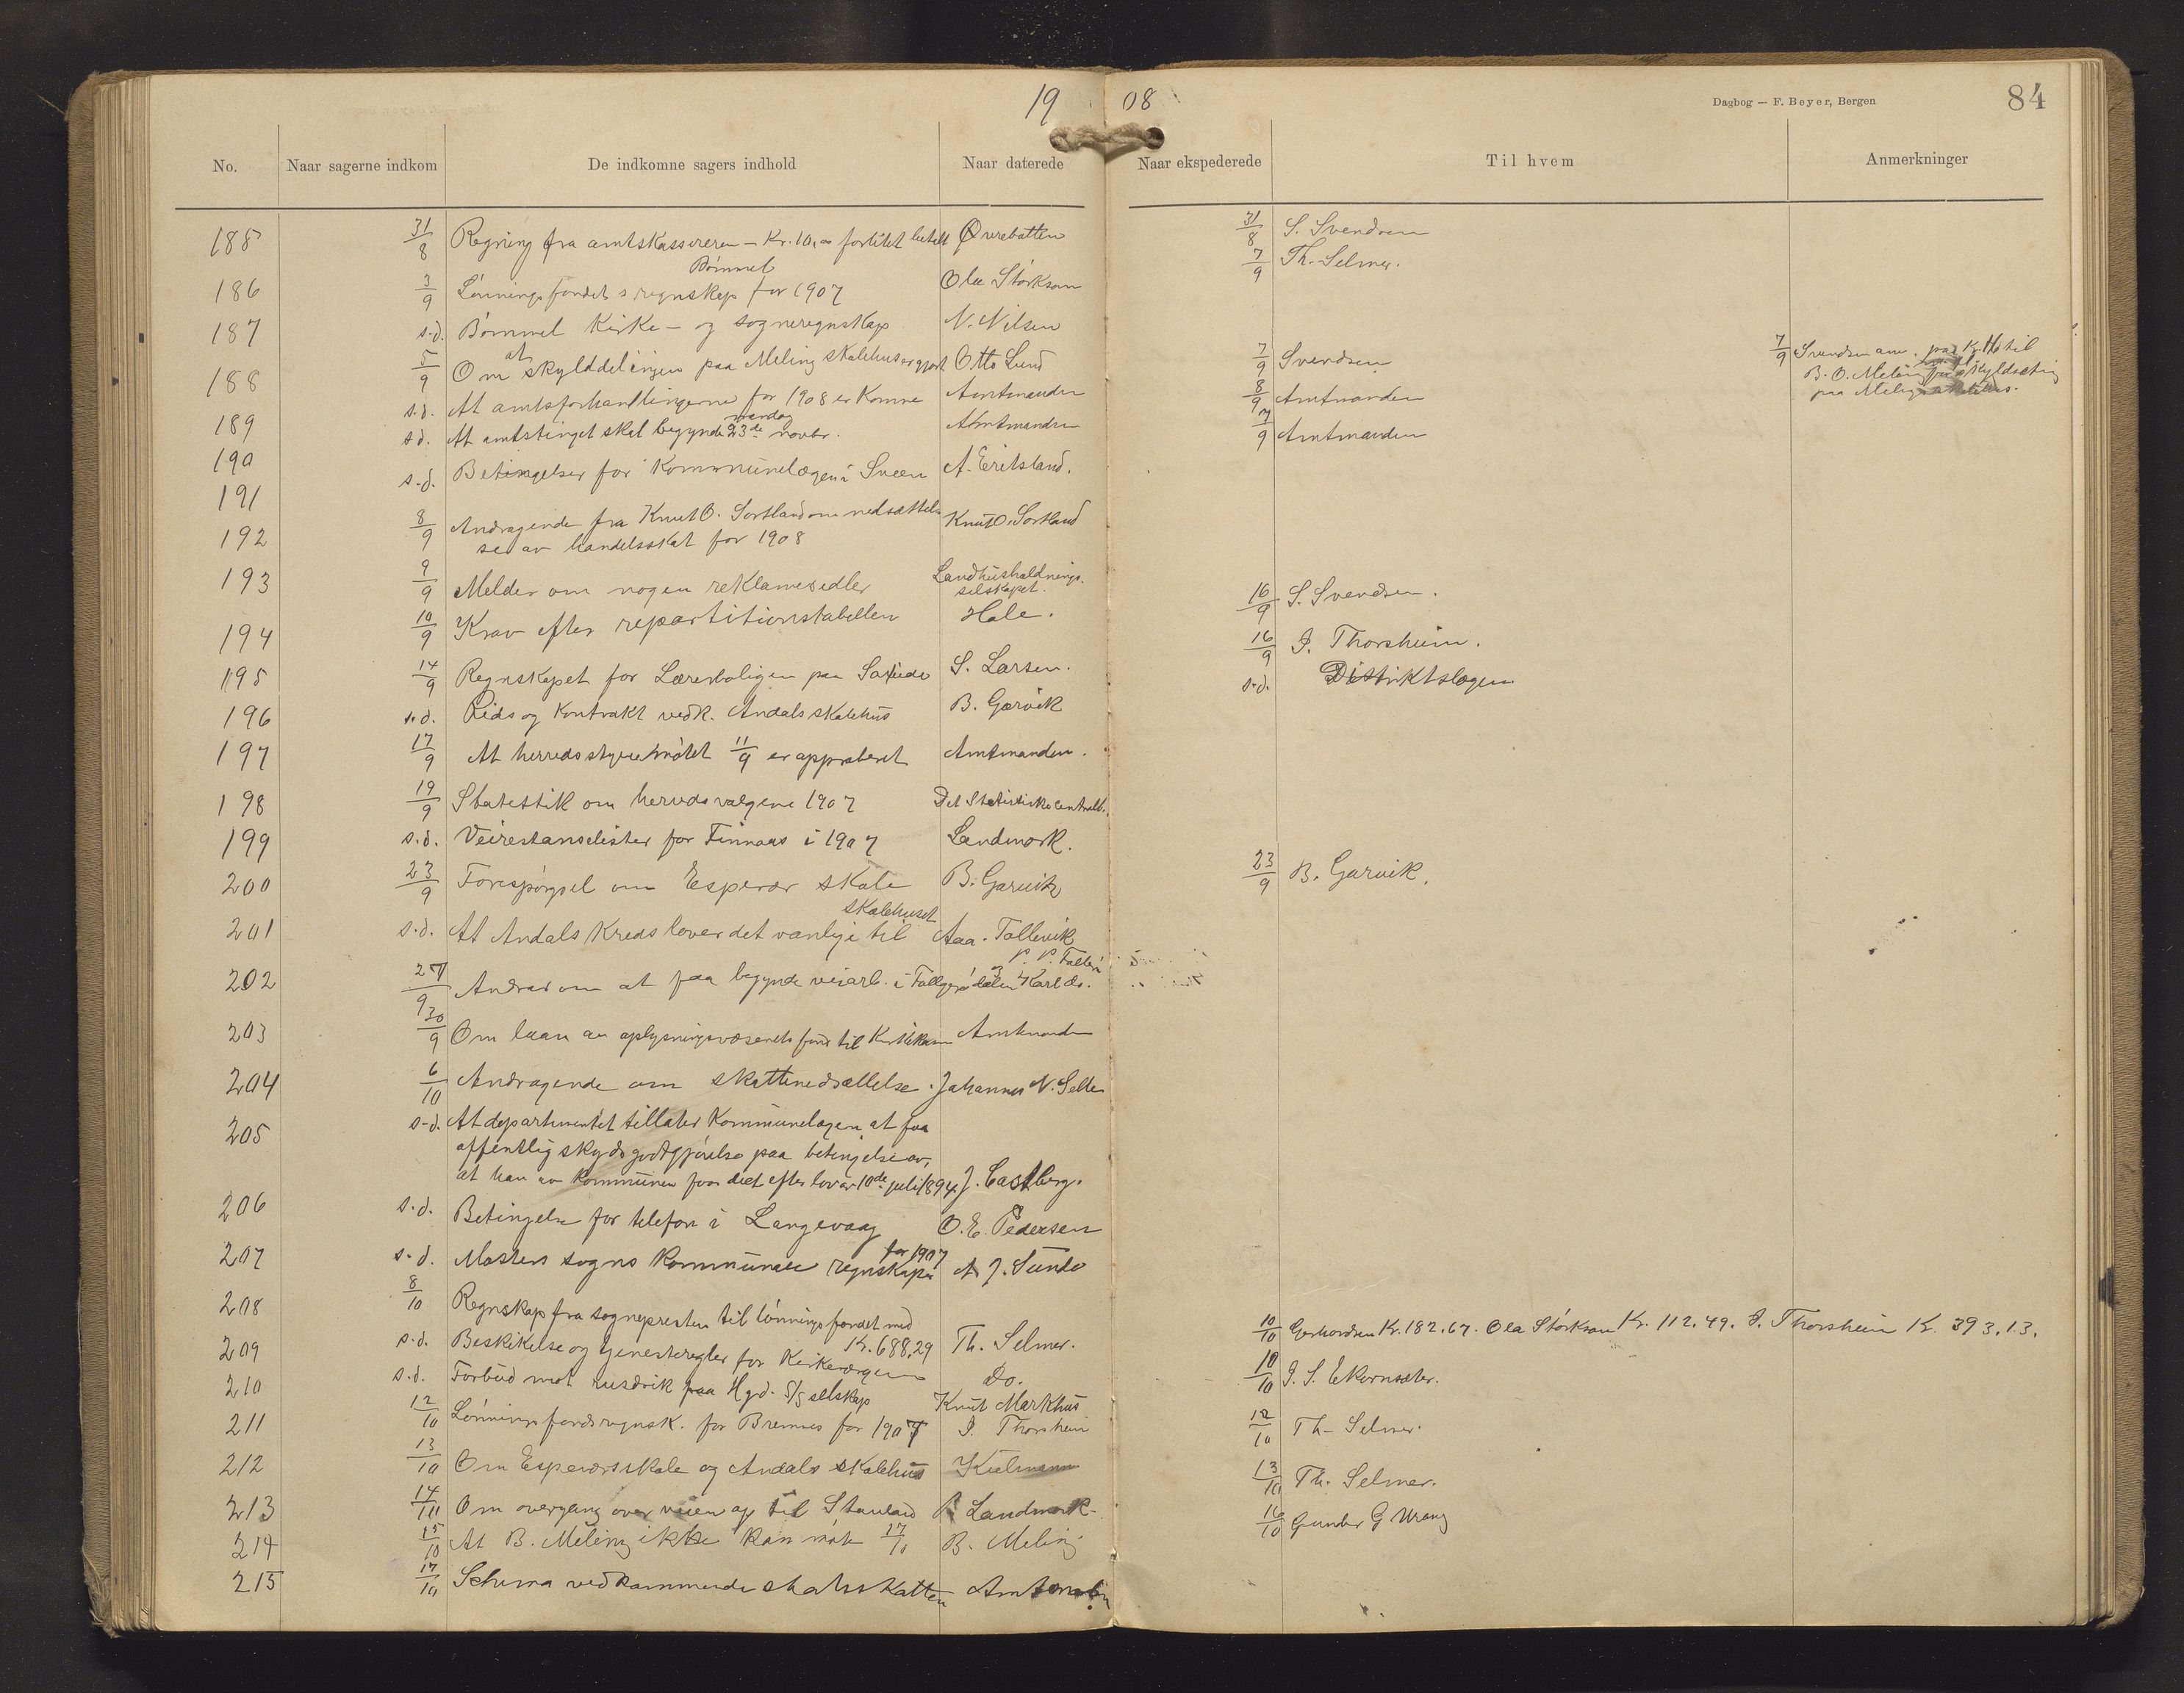 19 08
Dagbog — F. Beyer, Bergen
84
No. Naar sagerne indkom De indkomne sagers indhold Naar daterede Naar ekspederede Til hvem Anmerkninger
185 31/8 Regning fra amtskassereren — Kr. 10,00 forlitet betalt Øvrebotten 31/8 S. Svendsen
7/9 Th. Selmer.
Bömmel
186 3/9 Lönningsfondets regnskap for 1907 Ola Störkson
187 s.d. Bömmel Kirke- og sogneregnskap N. Nilsen
188 5/9 Om at skylddelingen paa Meling skolehus er gjort Otto Lund 7/9 Svendsen 7/9 Svendsen anv. paa Kr. til
B. O. Meling skyldsætning
paa Meling skolehus.
189 s.d. At amtsforhandlingerne for 1908 er komne Amtmanden 8/9 Amtmanden
mandag
190 s.d. At amtstinget skal begynde 23de novbr. Amtmanden 7/9 Amtmanden
191 s.d. Betingelser for Kommunelægen i Sveen A. Eritsland.
192 8/9 Andragende fra Knut O. Sortland om nedsættel- Knut O. Sortland
se av handelsskat for 1908
193 9/9 Melder om nogen reklamesedler Landhusholdnings-
selskapet. 16/9 S. Svendsen.
194 10/9 Krav efter repartitionstabellen Hole. 16/9 I. Thorsheim.
195 14/9 Regnskapet for Lærerboligen paa S. Larsen. s.d. Distriktslægen
196 s.d. Rids og Kontrakt vedk. Andals skolehus B. Garvik
197 17/9 At herredsstyremötet 11/9 er approberet Amtmanden.
198 19/9 Statestik om herredsvalgene 1907 Det Statistiske Centralb.
199 s.d. Veirestanselister for Finnaas i 1907 Landmark.
200 23/9 Forespörgsel om Esperær skole B. Garvik 23/9 B. Garvik.
skolehuset
201 s.d. At Andals Kreds lover det vanlige til Aaa. Tollevik
202 27/9 Andrar om at faa begynde veiarb. i Karl do.
203 30/9 Om laan av oplysningsvæsenets fond til Amtmanden
204 6/10 Andragende om skattenedsættelse. Johannes N. Selle
205 s.d. At departementet tillater Kommunelægen at faa
offentlig skydsgodtgjörelse paa betingelse av,
at han av kommunen faar diet efter lov av 10de juli 1894. J. Castberg.
206 s.d. Betingelse for telefon i Langevaag O. E. Pedersen
for 1907
207 s.d. Mosters sogns kommunale regnskaper A. J. Sunde
208 8/10 Regnskap fra sognepresten til lönningsfondet med
Kr. 688,29 Th. Selmer. 10/10 Gerhardsen Kr. 182.67. Ola Störkson Kr. 112.49. I. Thorsheim Kr. 393.13.
209 s.d. Beskikelse og tjenesteregler for Kirkeværgerne Do. 10/10 I. S. Ekornsæter.
210 s.d. Forbud mot rusdrik paa Hgrd. S/S selskap Knut Markhus
211 12/10 Lönningsfondsregnsk. for Bremnes for 1907 I. Thorsheim 12/10 Th. Selmer.
212 13/10 Om Esperærsskole og Andals skolehus Kielmann 13/10 Th. Selmer.
213 14/10 Om overgang over veien op til Landmark. 16/10 Gunder G Vrang
214 15/10 At B. Meling ikke kan möte 17/10 B. Meling
215 17/10 Schema vedkommende statsskatten Amtmanden